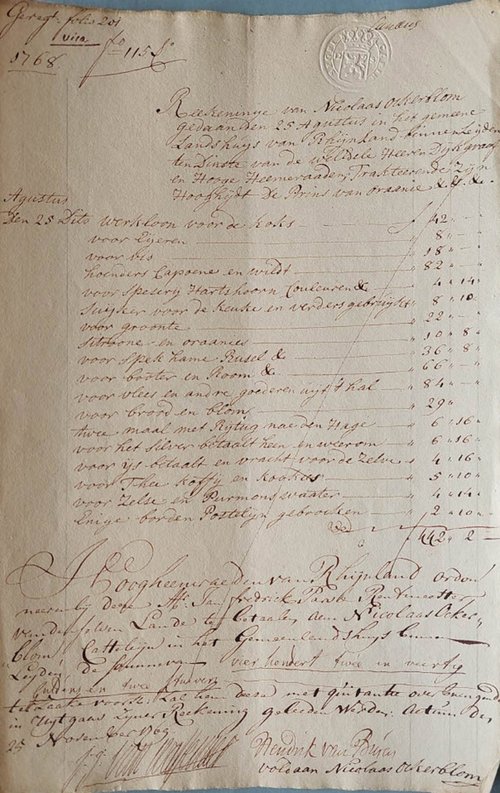 Geregt. folio 201
visa
1768
f 115
Reekeninge van Nicolaas Ockerblom
gedaan den 25 Agustus in het gemeene
Landshuys van Rhijnland binnen Leijden
ten Dinste van de WelEdele Heeren Dijkgraaf
en Hooge Heemeraaden, Trakteerende Zijn
Hoogheijt De Prins van oraanie & & &
Agustus
den 25 Dito werkloon voor de koks 42 " —
voor Eijeren 8 " —
voor vis 18 " —
hoenders Capoene en wildt 82 " —
voor Speserij Hartshoorn Couleuren & 4 " 14
Suijker voor de keuke en verders gebruijkt 8 " 10
voor groente 22 " —
Sitroone en oraanies 10 " 8
voor Spek hame & 36 " 8
voor booter en Room & 66 " —
voor vlees en andre goederen uijt 't hal 84 " —
voor brood en blom 29 "
twee maal met Rijtug nae den Hage 6 " 16
voor het Silver betaalt heen en weerom 6 " 16
voor ijs betaalt en vracht voor de Zelve 4 " 16
voor Thee Koffy en Koekies 5 " 10
voor Zelse en Purmonswaater 4 " 14
Enige borden Postelijn gebrooken 2 " 10
442 " 2 —
Hoogheemraaden van Rhijnland ordon
neeren bij deese Mr. Jan fredrick Rentmeester
van den Lande te betaalen aen Nicolaas Ocker-
blom, Castelijn in het Gemeenelandshuys binnen
Leyden de Somma van vier hondert twee en veertig
guldens en twee stuivers
in uytgaaf zijner Reekening geleeden Werden. Actum den
25 November 1769
Hendrik van Buren
voldaan Nicolaas Ockerblom